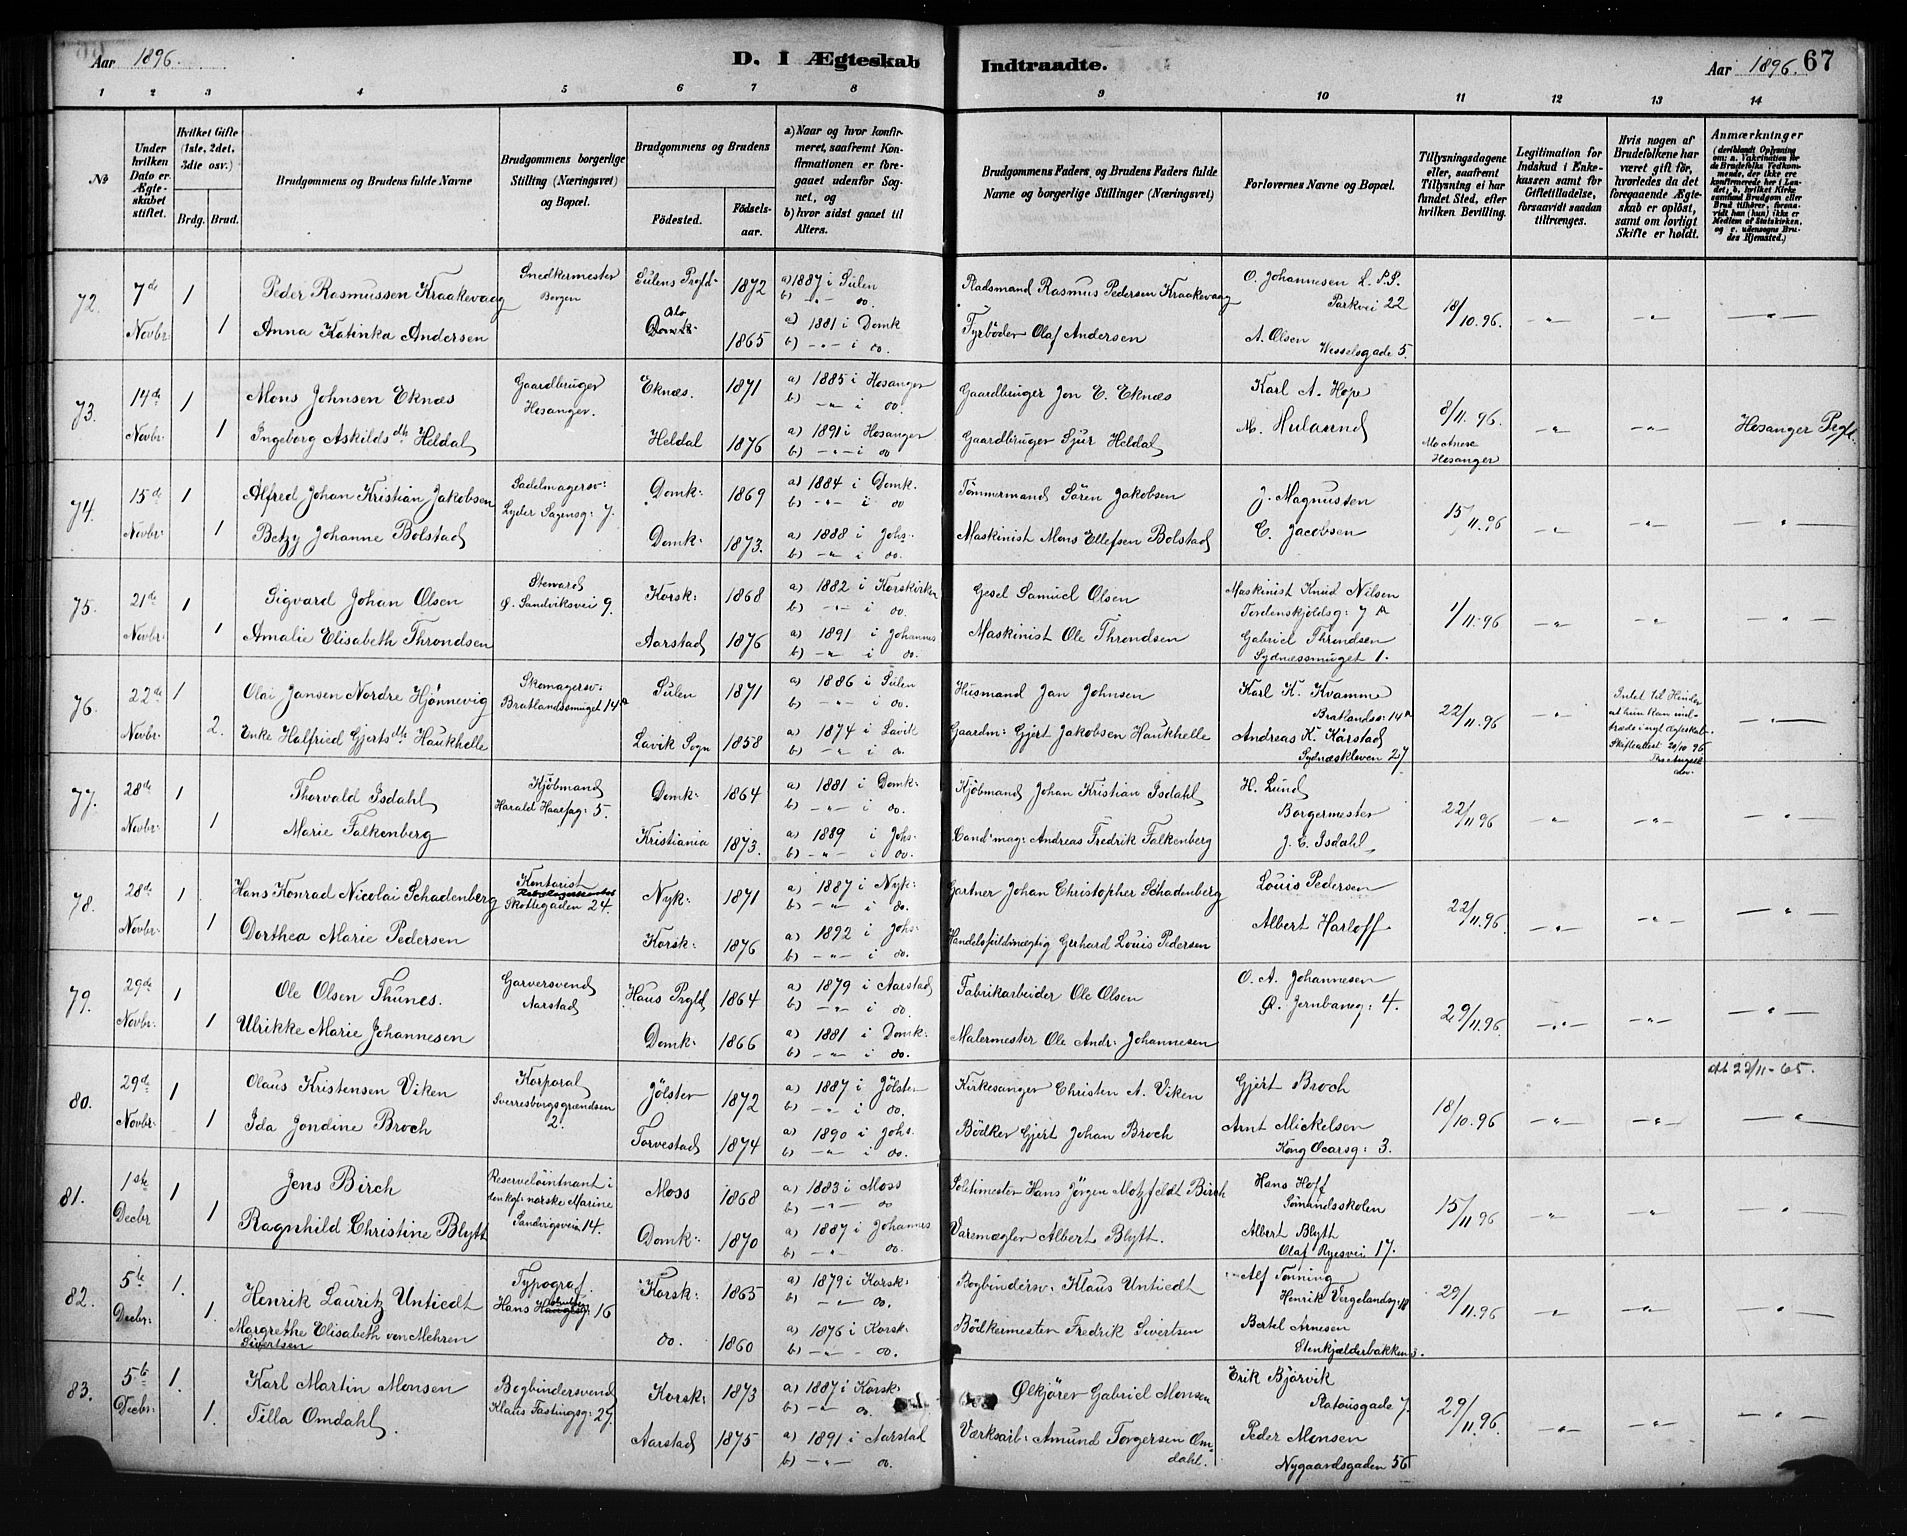 Aar 1896. D. I Ægteskab Indtraadte. Aar 1896. 67
1 2 3 4 5 6 7 8 9 10 11 12 13 14
No
Under hvilken Dato er Ægteskabet stiftet.
Hvilket Gifte (1ste, 2det, 3die osv.)
Brdg. Brud.
Brudgommens og Brudens fulde Navne
Brudgommens borgerlige Stilling (Næringsvei) og Bopæl.
Brudgommens og Brudens
Fødested. Fødselsaar.
a) Naar og hvor konfirmeret, saafremt Konfirmationen er foregaaet udenfor Sognet, og
b) hvor sidst gaaet til Alters.
Brudgommens Faders, og Brudens Faders fulde Navne og borgerlige Stillinger (Næringsvei)
Forlovernes Navne og Bopæl.
Tillysningsdagene eller, saafremt Tillysning ei har fundet Sted, efter hvilken Bevilling.
Legitimation for Indskud i Enkekassen samt for Giftetilladelse, forsaavidt saadan tiltrænges.
Hvis nogen af Brudefolkene har været gift før, hvorledes da det foregaaende Ægteskab er opløst, samt om lovligt Skifte er holdt.
Anmærkninger
(deriblandt Oplysning om: a. Vakcination for de Brudefolks Vedkommende, der ikke ere konfirmerede her i Landet; b. hvilket Kirkesamfund Brudgom eller Brud tilhører, forsaavidt han (hun) ikke er Medlem af Statskirken, og c. udensogns Brudes Hjemsted.)
72. 7de Novbr: 1 Peder Rasmussen Kraakevaag Snedkermester Bergen Sulens Prgld- 1872 a) 1887 i Sulen b) -"- oo. Raadsmand Rasmus Pedersen Kraakevaag O. Johannesen L. P.P. Parkvei 22 18/10.96. -"- -"- -"-
1 Anna Katinka Andersen 1865 a) 1881 i Domk b) -"- i oo. Fyrbøder Olaf Andersen A. Olsen Wesselsgade 5.
73. 14de Novbr: 1 Mons Johnsen Eknæs Gaardbruger Hosanger. Eknæs. 1871 a) 1885 i Hosanger b) -"- i oo. Gaardbruger Jon E. Eknæs Karl A. Hope 8/11.96. Hosanger -"- -"- Hosanger Prgld.
1 Ingeborg Askildsdtr Heldal Heldal 1876 a) 1891 i Hosanger b) -"- i oo Gaardbruger Sjur Heldal
74. 15de Novbr: 1 Alfred Johan Kristian Jakobsen Sadelmagersv: Lyder Sagensg: 7. Domk: 1869 a) 1884 i Domk. b) -"- i oo Tømmermand Søren Jakobsen J. Magnussen 15/11.96 -"- -"- -"-
1 Betzy Johanne Bolstad Domk: 1873. a) 1888 i Johs. b) -"- i oo. Maskinist Mons Ellefsen Bolstad C. Jacobsen
75. 21de Novbr: 1 Sigvard Johan Olsen Steward Ø. Sandviksvei 9. Korsk: 1868 a) 1882 i Korskirken b) -"- i oo. Samuel Olsen Maskinist Knud Nilsen Tordenskjoldsg: 7 A 1/11.96 -"- -"- -"-
1 Amalie Elisabeth Throndsen Aarstad 1876 a) 1891 i Johannes b) -"- i oo. Maskinist Ole Throndsen Gabriel Throndsen Sydnæssmuget 1.
76. 22de Novbr: 1 Olai Jansen Nordre Hjønnevig Skomagersv: Bratlandssmuget 14a Sulen 1871 a) 1886 i Sulen b) -"- i oo. Husmand Jan Johnsen Karl K. Kvamme Bratlandss: 14a 22/11.96 -"- Intet til Hinder at hun kan indtræde i nyt Ægteskab. Skifteattest 20/10 96 -"-
2. Enke Halfried Gjertsdtr Haukhelle Lavik Sogn 1858 a) 1874 i Lavik b) -"- i o. Gaardm: Gjert Jakobsen Haukhelle Andreas K. Kårstad Sydnæskleven 27
77. 28de Novbr: 1 Thorvald Isdahl Kjøbmand Harald Haarfag: 5. Domk: 1864 a) 1881 i Domk: b) -"- i oo. Kjøbmand Johan Kristian Isdahl H. Lund Borgermester 22/11.96 -"- -"- -"-
1 Marie Falkenberg Kristiania 1873. a) 1889 i Johs. b) -"- i oo. Cand: mag: Andreas Fredrik Falkenberg J. C. Isdahl.
78. 28de Novbr: 1 Hans Konrad Nicolai Schadenberg Kontorist Skottegaden 24. Nyk: 1871 a) 1887 i Nyk: b) -"- i oo. Gartner Johan Christopher Schadenberg Louis Pedersen 22/11.96. -"- -"- -"-
1 Dorthea Marie Pedersen Korsk: 1876 a) 1892 i Johs. b) -"- i oo. Handelsfuldmægtig Gerhard Louis Pedersen Albert Harloff
79. 29de Novbr: 1 Ole Olsen Thunes. Garversvend Aarstad Haus Prgld 1864 a) 1879 i Aarstad b) -"- i oo. Fabrikarbeider Ole Olsen O. A. Johannesen Ø. Jernbaneg: 4. 29/11.96. -"- -"- -"-
1 Ulrikke Marie Johannesen Domk: 1866 a) 1881 i Domk: b) -"- i oo. Malermester Ole Andr: Johannesen
80. 29de Novbr: 1 Olaus Kristensen Viken Korporal Sverresborgsgrændsen 2. Jølster 1872 a) 1887 i Jølster b) -"- i oo. Kirkesanger Christen A. Viken Gjert Broch 18/10.96 -"- -"- Att 23/11-65. -"-
1 Ida Jondine Broch Torvestad 1874 a) 1890 i Johs. b) -"- i oo. Bødker Gjert Johan Broch Arnt Mickelsen Kong Oscarsg: 3.
81. 1ste Decbr 1 Jens Birch Reserveløitnant i den kgl: norske Marine Sandvigsvein 14. Moss 1868 a) 1883 i Moss b) -"- oo Politimester Hans Jørgen Motzfeldt Birch Hans Hoff Sømandsskolen 15/11.96 -"- -"- -"-
1 Ragnhild Christine Blytt Domk: 1870 a) 1887 i Johannes b) -"- oo. Varemægler Albert Blytt. Albert Blytt Olaf Ryesvei 17.
82. 5te Decbr: 1. Henrik Lauritz Untiedt Typograf Hans Haugesg: 16 Korsk: 1865 a) 1879 i Korsk: b) -"- oo. Bogbindersv: Klaus Untiedt Alf Tonning Henrik Vergelandsg: 18 29/11.96 -"- -"- -"-
1. Margrethe Elisabeth von Mehren Sivertsen oo. 1860 a) 1876 i Korsk: b) -"- oo. Bødkermester Fredrik Sivertsen Bertel Arnesen Stenkjælderbakken 3.
83. 5te Decbr: 1. Karl Martin Monsen Bogbindersvend Klaus Fastingsg: 27. Korsk: 1873 a) 1887 i Korsk. b) -"- oo. Ølkjører Gabriel Monsen Erik Bjørvik Ratousgade 7. 29/11.96. -"- -"- -"-
1. Tilla Omdahl. Aarstad 1875 a) 1891 i Aarstad b) -"- oo. Værksarb: Amund Torgersen Omdahl. Peder Monsen Nygaardsgaden 56